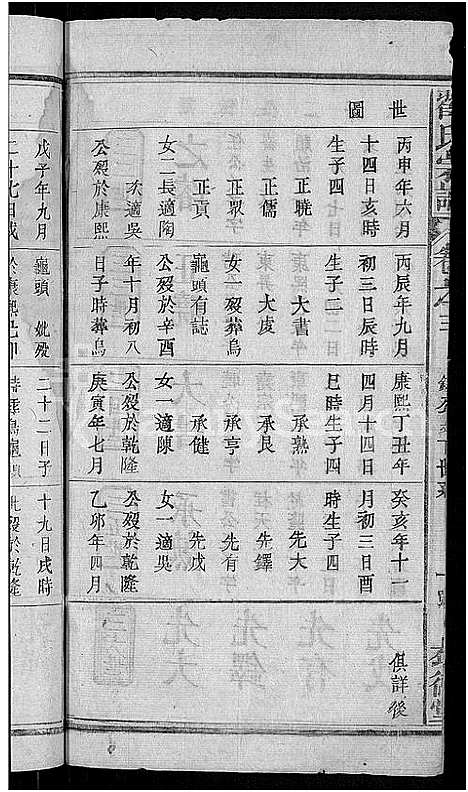 世圖
丙申年六月
十四日亥時
生子四
正曉
正儒
正眾
正貢
女二長適陶
次適吳
公歿於康熙
戊子年九月
二十七日戌
丙辰年九月
初三日辰時
生子二
大書
大成
女一歿葬烏
龜頭有誌
公歿於辛酉
年十月初八
日子時葬烏
龜頭 妣歿
於康熙
康熙丁丑年
四月十四日
巳時生子四
承熟
承艮
承亨
承健
女一適陳
公歿於乾隆
庚寅年七月
二十二日子
癸亥年十一
月初三日酉
時生子四
先大
先鐸
先有
先成
女一適吳
公歿於乾隆
乙邜年四月
十九日戌時
妣歿於乾隆
俱詳後